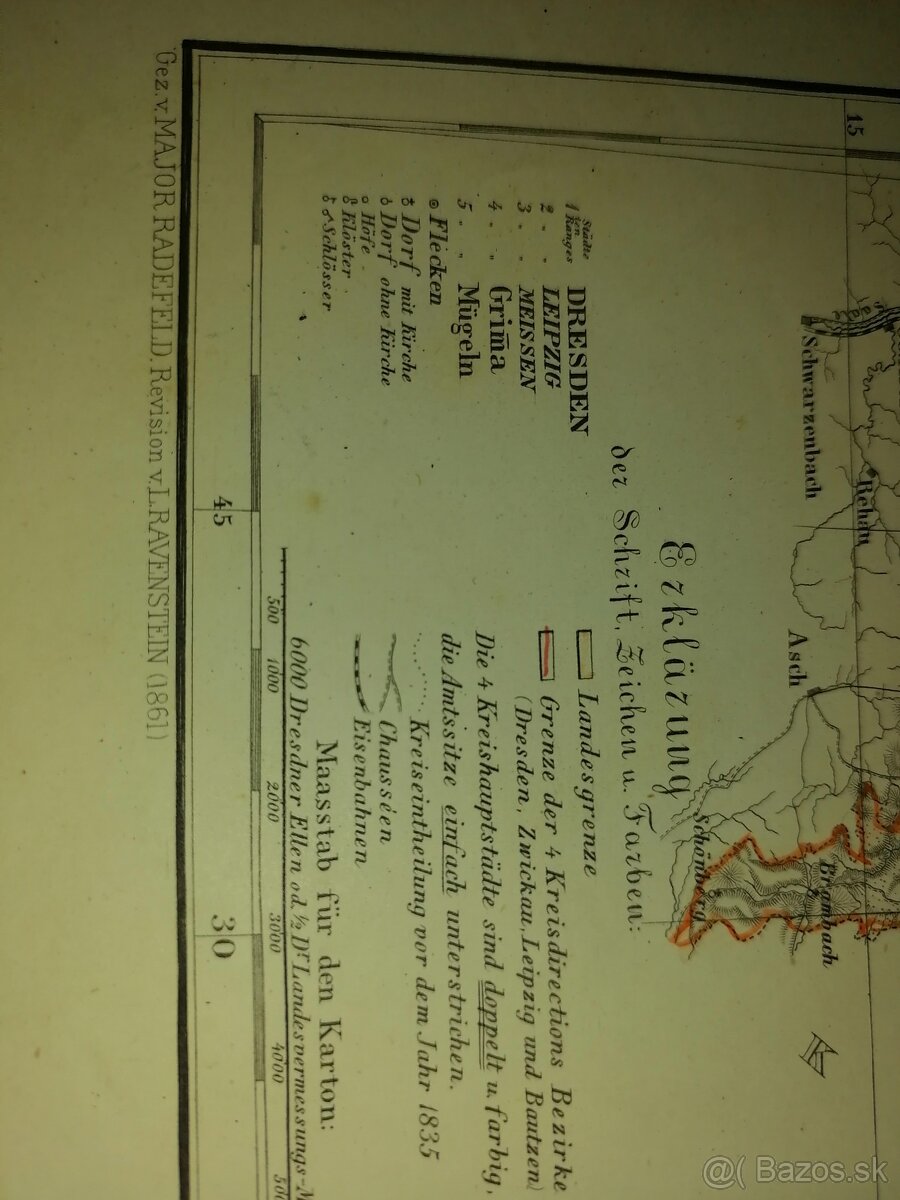 15
Schwarzenbach
Rehau
Asch
Schönberg
Brambach
K
Erklärung
der Schrift, Zeichen u. Farben:
Städte
1 ten Ranges DRESDEN
2 " " LEIPZIG
3 " " MEISSEN
4 " " Grim̄a
5 " " Mügeln
Flecken
Dorf mit Kirche
Dorf ohne Kirche
Höfe
Klöster
Schlösser
Landesgrenze
Grenze der 4 Kreisdirections Bezirke
(Dresden, Zwickau, Leipzig und Bautzen)
Die 4 Kreishauptstädte sind doppelt u. farbig,
die Amtssitze einfach unterstrichen.
Kreiseintheilung vor dem Jahr 1835
Chausséen
Eisenbahnen
Maasstab für den Karton:
6000 Dresdner Ellen od. ½ Dr Landesvermessungs-M
500 1000 2000 3000 4000 50
45 30
Gez. v. MAJOR RADEFELD, Revision v. L. RAVENSTEIN (1861)
@( Bazos.sk